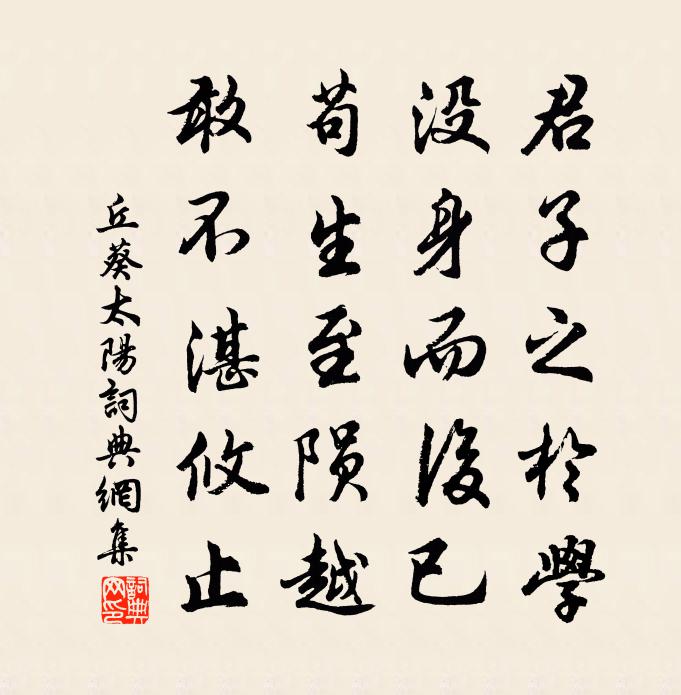 君子之於學
没身而後已
苟生至陨越
敢不湛攸止
丘葵太陽詞典網集
詞典网印